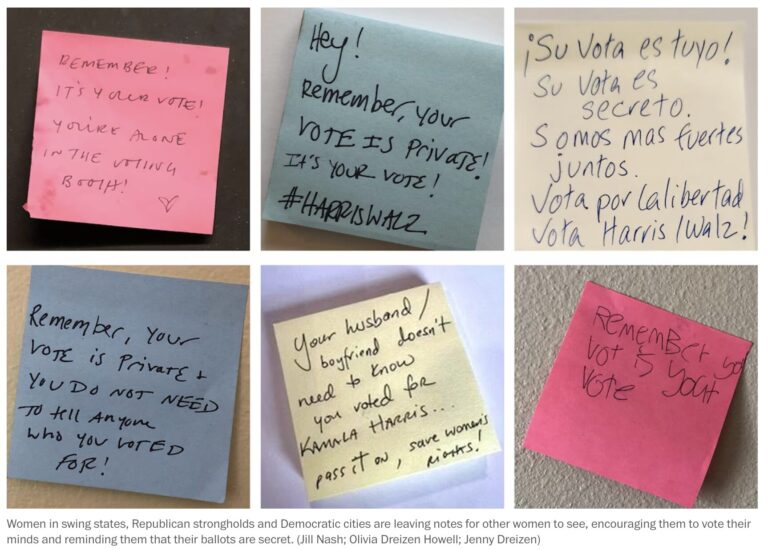 REMEMBER!
IT'S YOUR VOTE!
YOU'RE ALONE
IN THE VOTING
BOOTH!
Hey!
Remember, your
VOTE IS Private!
It's YOUR VOTE!
#HARRISWALZ
¡Su Vota es tuyo!
Su vota es
secreto.
Somos mas fuertes
juntos.
Vota por la libertad
Vota Harris/Walz!
Remember, your
VOTE is Private +
YOU DO NOT NEED
TO tell Anyone
who you VOTED
FOR!
Your husband/
boyfriend doesn't
need to know
you voted for
KAMALA HARRIS....
pass it on, save women's
rights!
REMEMBER yo
Vot is your
Vote
Women in swing states, Republican strongholds and Democratic cities are leaving notes for other women to see, encouraging them to vote their
minds and reminding them that their ballots are secret. (Jill Nash; Olivia Dreizen Howell; Jenny Dreizen)